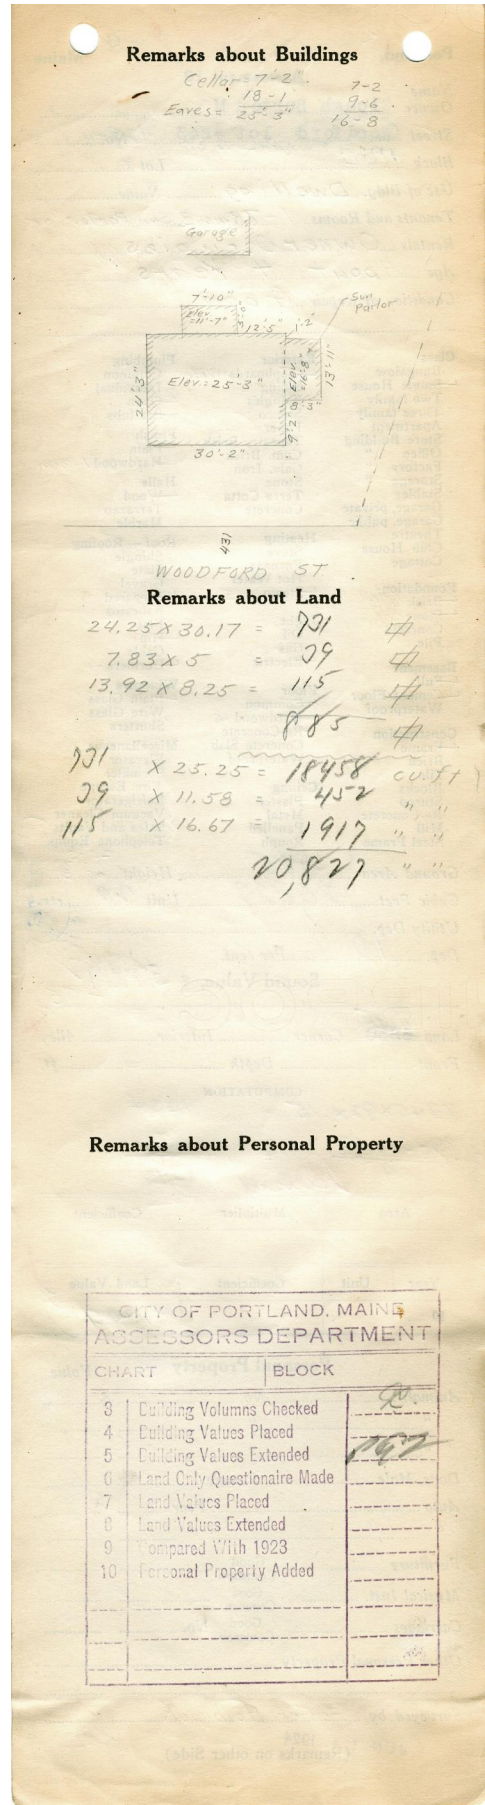 Remarks about Buildings
Cellar = 7'-2" 7-2
18-1 9-6
Eaves = 25'-3" 16-8
Garage
7'-10"
Sun
Parlor
Elev.
=11'-7"
12'-5" 1'-2"
24'-3" Elev = 25'-3" Elev = 16'-8" 13'-11"
8'-3"
9'-2"
30'-2"
431
WOODFORD ST
Remarks about Land
24.25 X 30.17 = 731
7.83 X 5 = 39
13.92 X 8.25 = 115
885
731 X 25.25 = 18458 cu. ft
39 X 11.58 = 452 " "
115 X 16.67 = 1917 " "
20,827 " "
Remarks about Personal Property
CITY OF PORTLAND, MAINE
ASSESSORS DEPARTMENT
CHART BLOCK
3 Building Volumns Checked
4 Building Values Placed
5 Building Values Extended
6 Land Only Questionaire Made
7 Land Values Placed
8 Land Values Extended
9 Compared With 1923
10 Personal Property Added